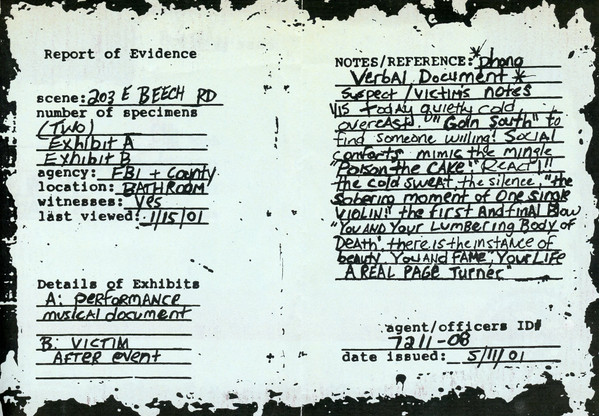 Report of Evidence
scene: 203 E BEECH RD
number of specimens
(TWO)
Exhibit A
Exhibit B
agency: FBI + County
location: BATHROOM
witnesses: Yes
last viewed: 1/15/01
Details of Exhibits
A: PERFORMANCE
musical document
B: VICTIM
AFTER EVENT
NOTES/REFERENCE: *phono
Verbal Document *
SUSPECT/VICTIMS NOTES
VIS today quietly cold,
overcast. "Goin South" to
find someone willing! Social
comforts mimic the mingle
"Poison the CAKE" "REACT!"
the cold sweat, the silence. "the
sobering moment of One Single
VIOLIN!" the first And final Blow
"YOU AND Your Lumbering Body of
Death", there is the instance of
beauty. "You and FAME", "Your LIFE
A REAL PAGE Turner"
agent/officers ID#
7211-08
date issued: 5/11/01